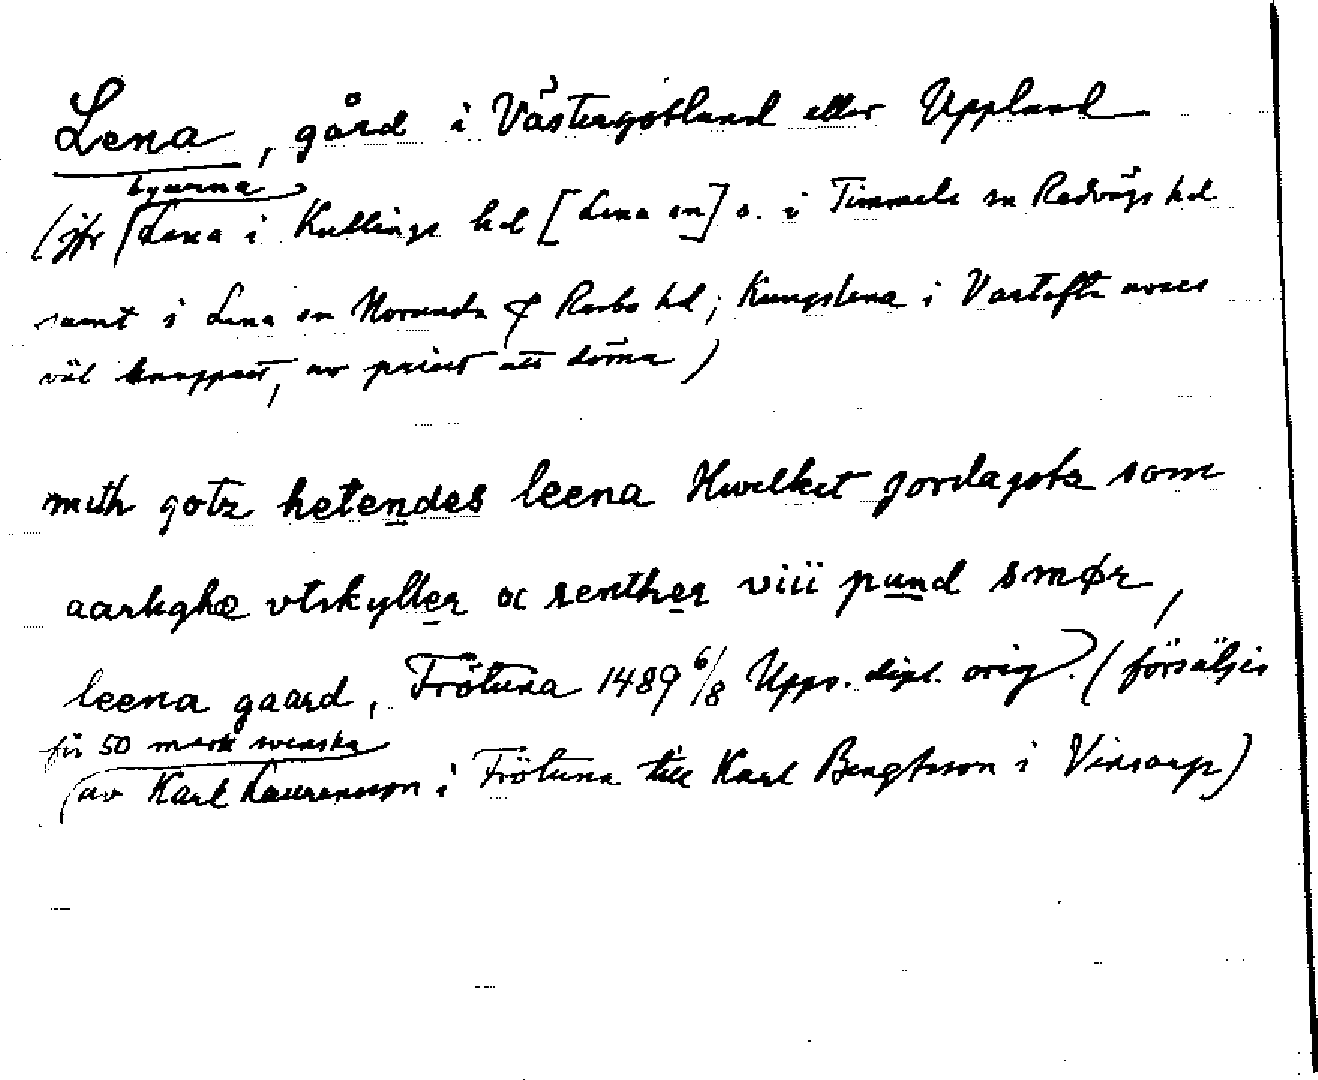 Lena, gård i Västergötland eller Uppland
byarna
(jfr Lena i Kullings hd [Lena sn] o. i Timmele sn Redvägs hd
samt i Lena sn Norunda & Rasbo hd; Kungslena i Vartofta avses
väl knappast, av priset att döma)
mith gotz hetendes leena Hwelket jordagotz som
aarlighæ vtskyller oc renther viii pund smør,
leena gaard, Frötuna 1489 6/8 Upps. dipl. orig. (försäljes
för 50 mark svenska
av Karl Laurensson i Frötuna till Karl Bengtsson i Vinsarp)